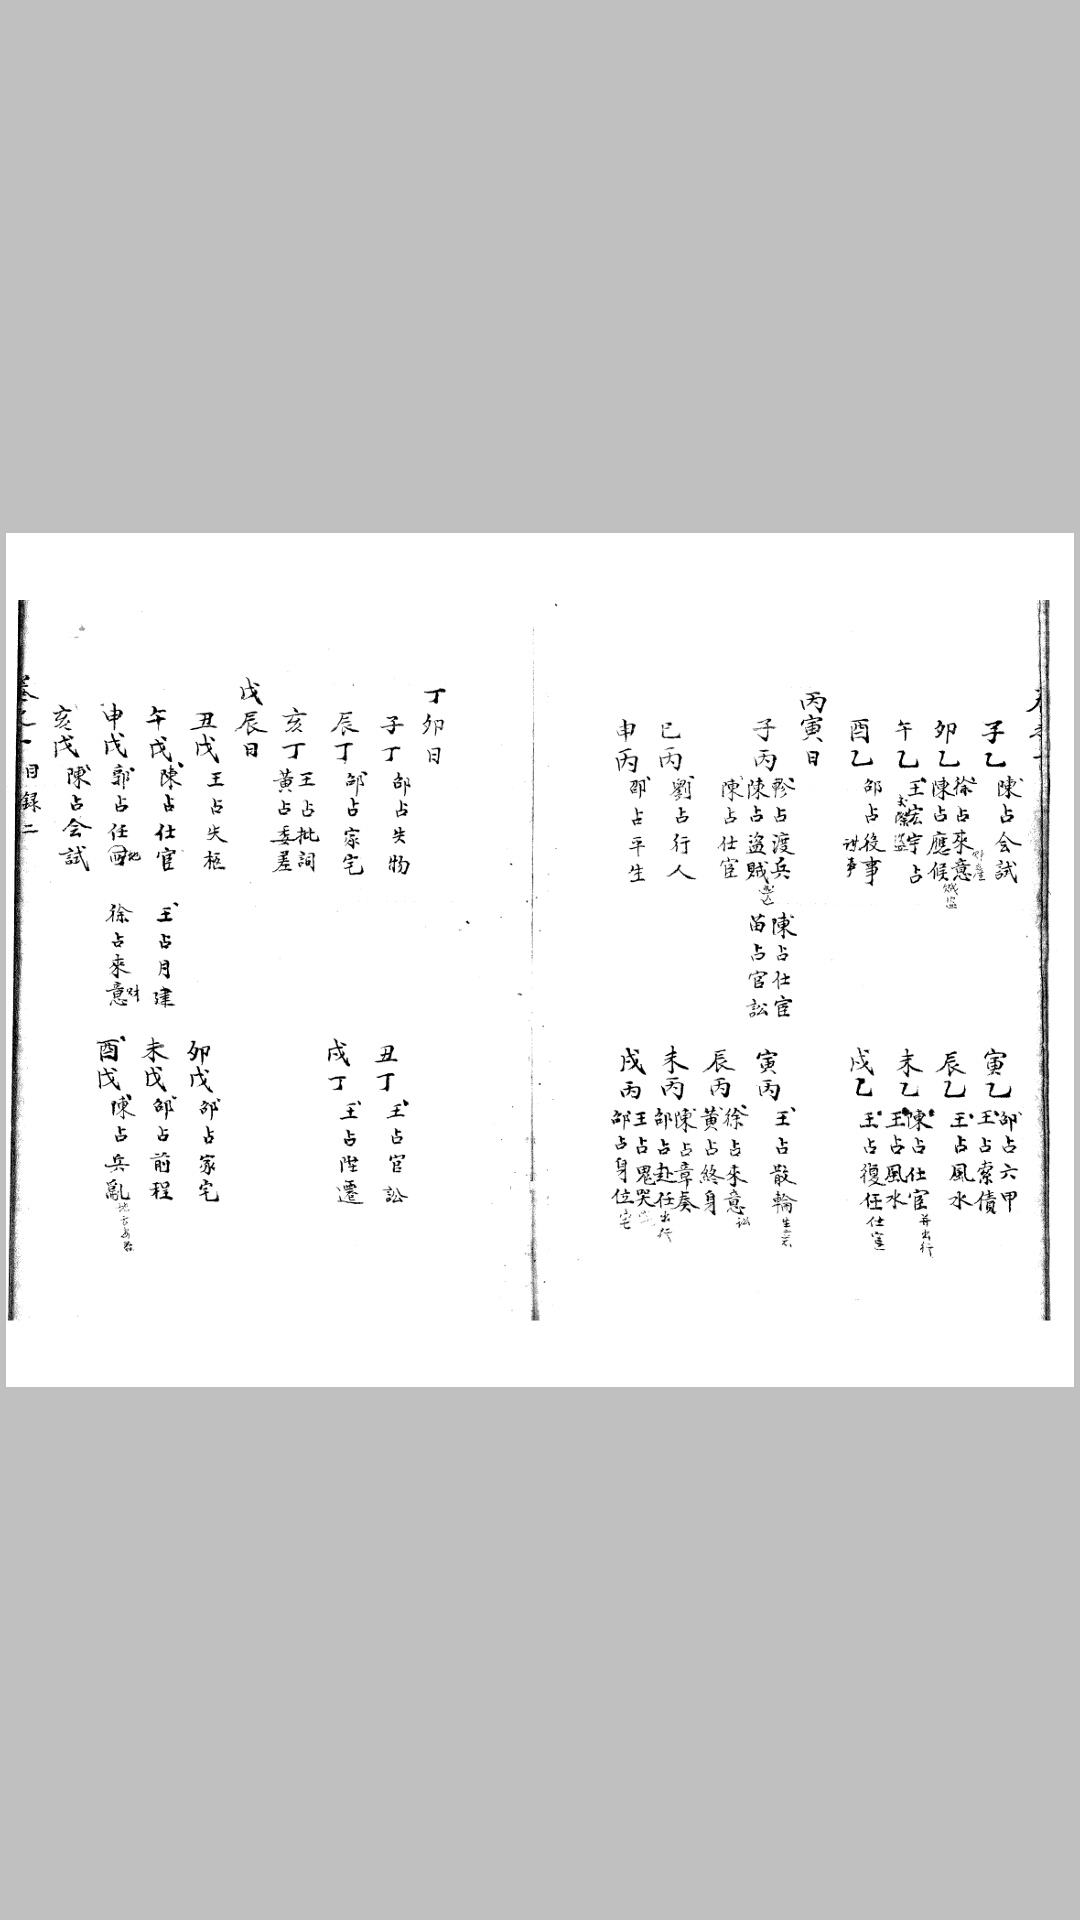 子乙 陳占会試
寅乙 邵占六甲 王占索債
卯乙 徐占來意 陳占應候 賊盜
辰乙 王占風水
午乙 王宏宇占 盜
未乙 陳占仕宦 并出行 王占風水
酉乙 邵占後事
戌乙 王占復任 仕宦
丙寅日
子丙 占渡兵 陳占盜賊 陳占仕宦 苗占官訟
陳占仕宦
寅丙 王占散輪
辰丙 徐占來意 訟 黃占終身
巳丙 劉占行人
未丙 陳占章奏 邵占赴任 出行
申丙 邵占平生
戌丙 王占鬼哭 邵占身位 宅
丁卯日
子丁 邵占失物
丑丁 王占官訟
辰丁 邵占家宅
戌丁 王占陞遷
亥丁 王占批詞 黃占委差
戊辰日
丑戊 王占失柩
卯戊 邵占家宅
午戊 陳占仕宦 王占月建
未戊 邵占前程
申戊 郭占任 地 徐占來意 財
酉戊 陳占兵亂
亥戊 陳占会試
卷之一目録二